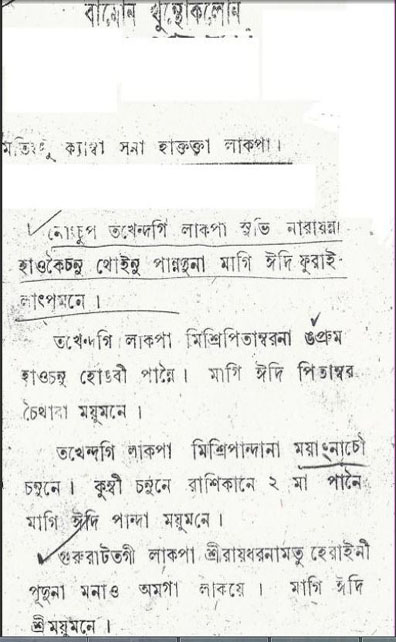 বামোন খুন্থোকলোন
ক্যাম্বা সনা হাক্তক্তা লাকপা।
নোংচুপ তখেন্দগি লাকপা স্তভি নারায়ন্না
হাওকৈচনু থোইনু পান্নদুনা মাগি ঈদি ফুরাই-
লাৎপমনে ।
তখেন্দগি লাকপা মিশ্রিপিতাম্বরনা
হাওচনু হোঙবী পান্নৈ। মাগি ঈদি পিতাম্বর
চৈথাবা ময়ুমনে ।
তখেন্দগি লাকপা মিশ্রিপান্দানা ময়াংনাচৌ
চনুনে । কুম্বী চনুনে রাশিকানে ২ মা পানৈ
মাগি ঈদি পান্দা ময়ুমনে ।
গুরুরাটতগী লাকপা শ্রীরায়ধরনামতু হেরাইনী
পূতুনা মনাও অমগা লাকয়ে । মাগি ঈদি
শ্রীময়ুমনে ।